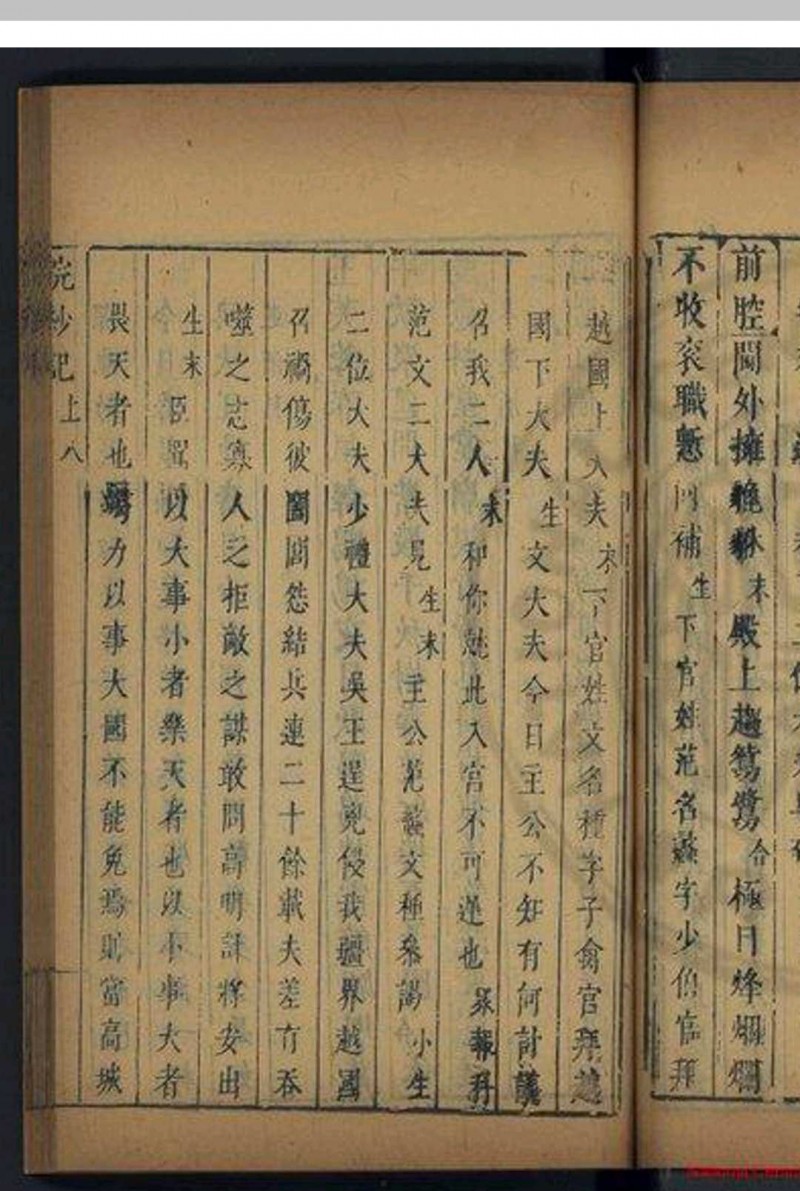 前腔閫外擁貔貅末殿上趨鴛鷺合極目烽烟爛
不收袞職慙何補生下官姓范名蠡字少伯官拜
越國上大夫末下官姓文名種字子禽官拜越
國下大夫生文大夫今日主公不知有何計議
召我二人末和你就此入宮不可遲也衆報科
范文二大夫見生末主公范蠡文種叅謁小生
二位大夫少禮大夫吳王逞兇侵我疆界越國
召禍傷彼闔閭怨結兵連二十餘載夫差有吞
噬之志寡人乏拒敵之謀敢問高明計將安出
生末臣聞以大事小者樂天者也以小事大者
畏天者也弱力以事大國不能免焉則當高城
浣紗記 上 八